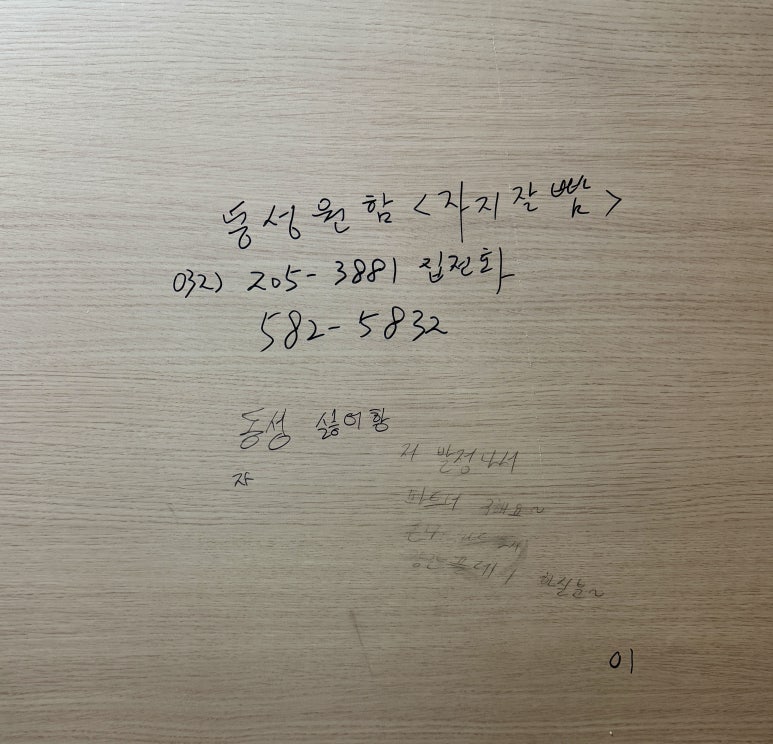 동성원함 <자지잘빰>
032) 205-3881 집전화
582-5832
동성 싫어함
자
저 발정나서
파트너 구해요~
하실분~
01